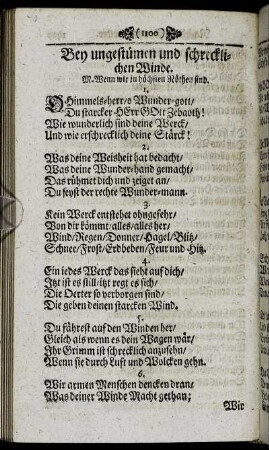 (1100)
Bey ungestümen und schreckli-
chen Winde.
M. Wenn wir in höchsten Nöthen sind.
1.
O Himmels-herr/o Wunder-gott/
Du starcker HErr GOtt Zebaoth!
Wie wunderlich sind deine Werck/
Und wie erschrecklich deine Stärck!
2.
Was deine Weisheit hat bedacht/
Was deine Wunder-hand gemacht/
Das rühmet dich und zeiget an/
Du seyst der rechte Wunder-mann.
3.
Kein Werck entstehet ohngefehr/
Von dir kömmt/alles/alles her/
Wind/Regen/Donner/Hagel/Blitz/
Schnee/Frost/Erdbeben/Feur und Hitz.
4.
Ein iedes Werck das sieht auf dich/
Itzt ist es still/itzt regt es sich/
Die Oerter so verborgen sind/
Die geben deinen starcken Wind.
5.
Du fährest auf den Winden her/
Gleich als wenn es dein Wagen wär/
Ihr Grimm ist schrecklich anzusehn/
Wenn sie durch Luft und Wolcken gehn.
6.
Wir armen Menschen dencken dran/
Was deiner Winde Macht gethan;
Wir